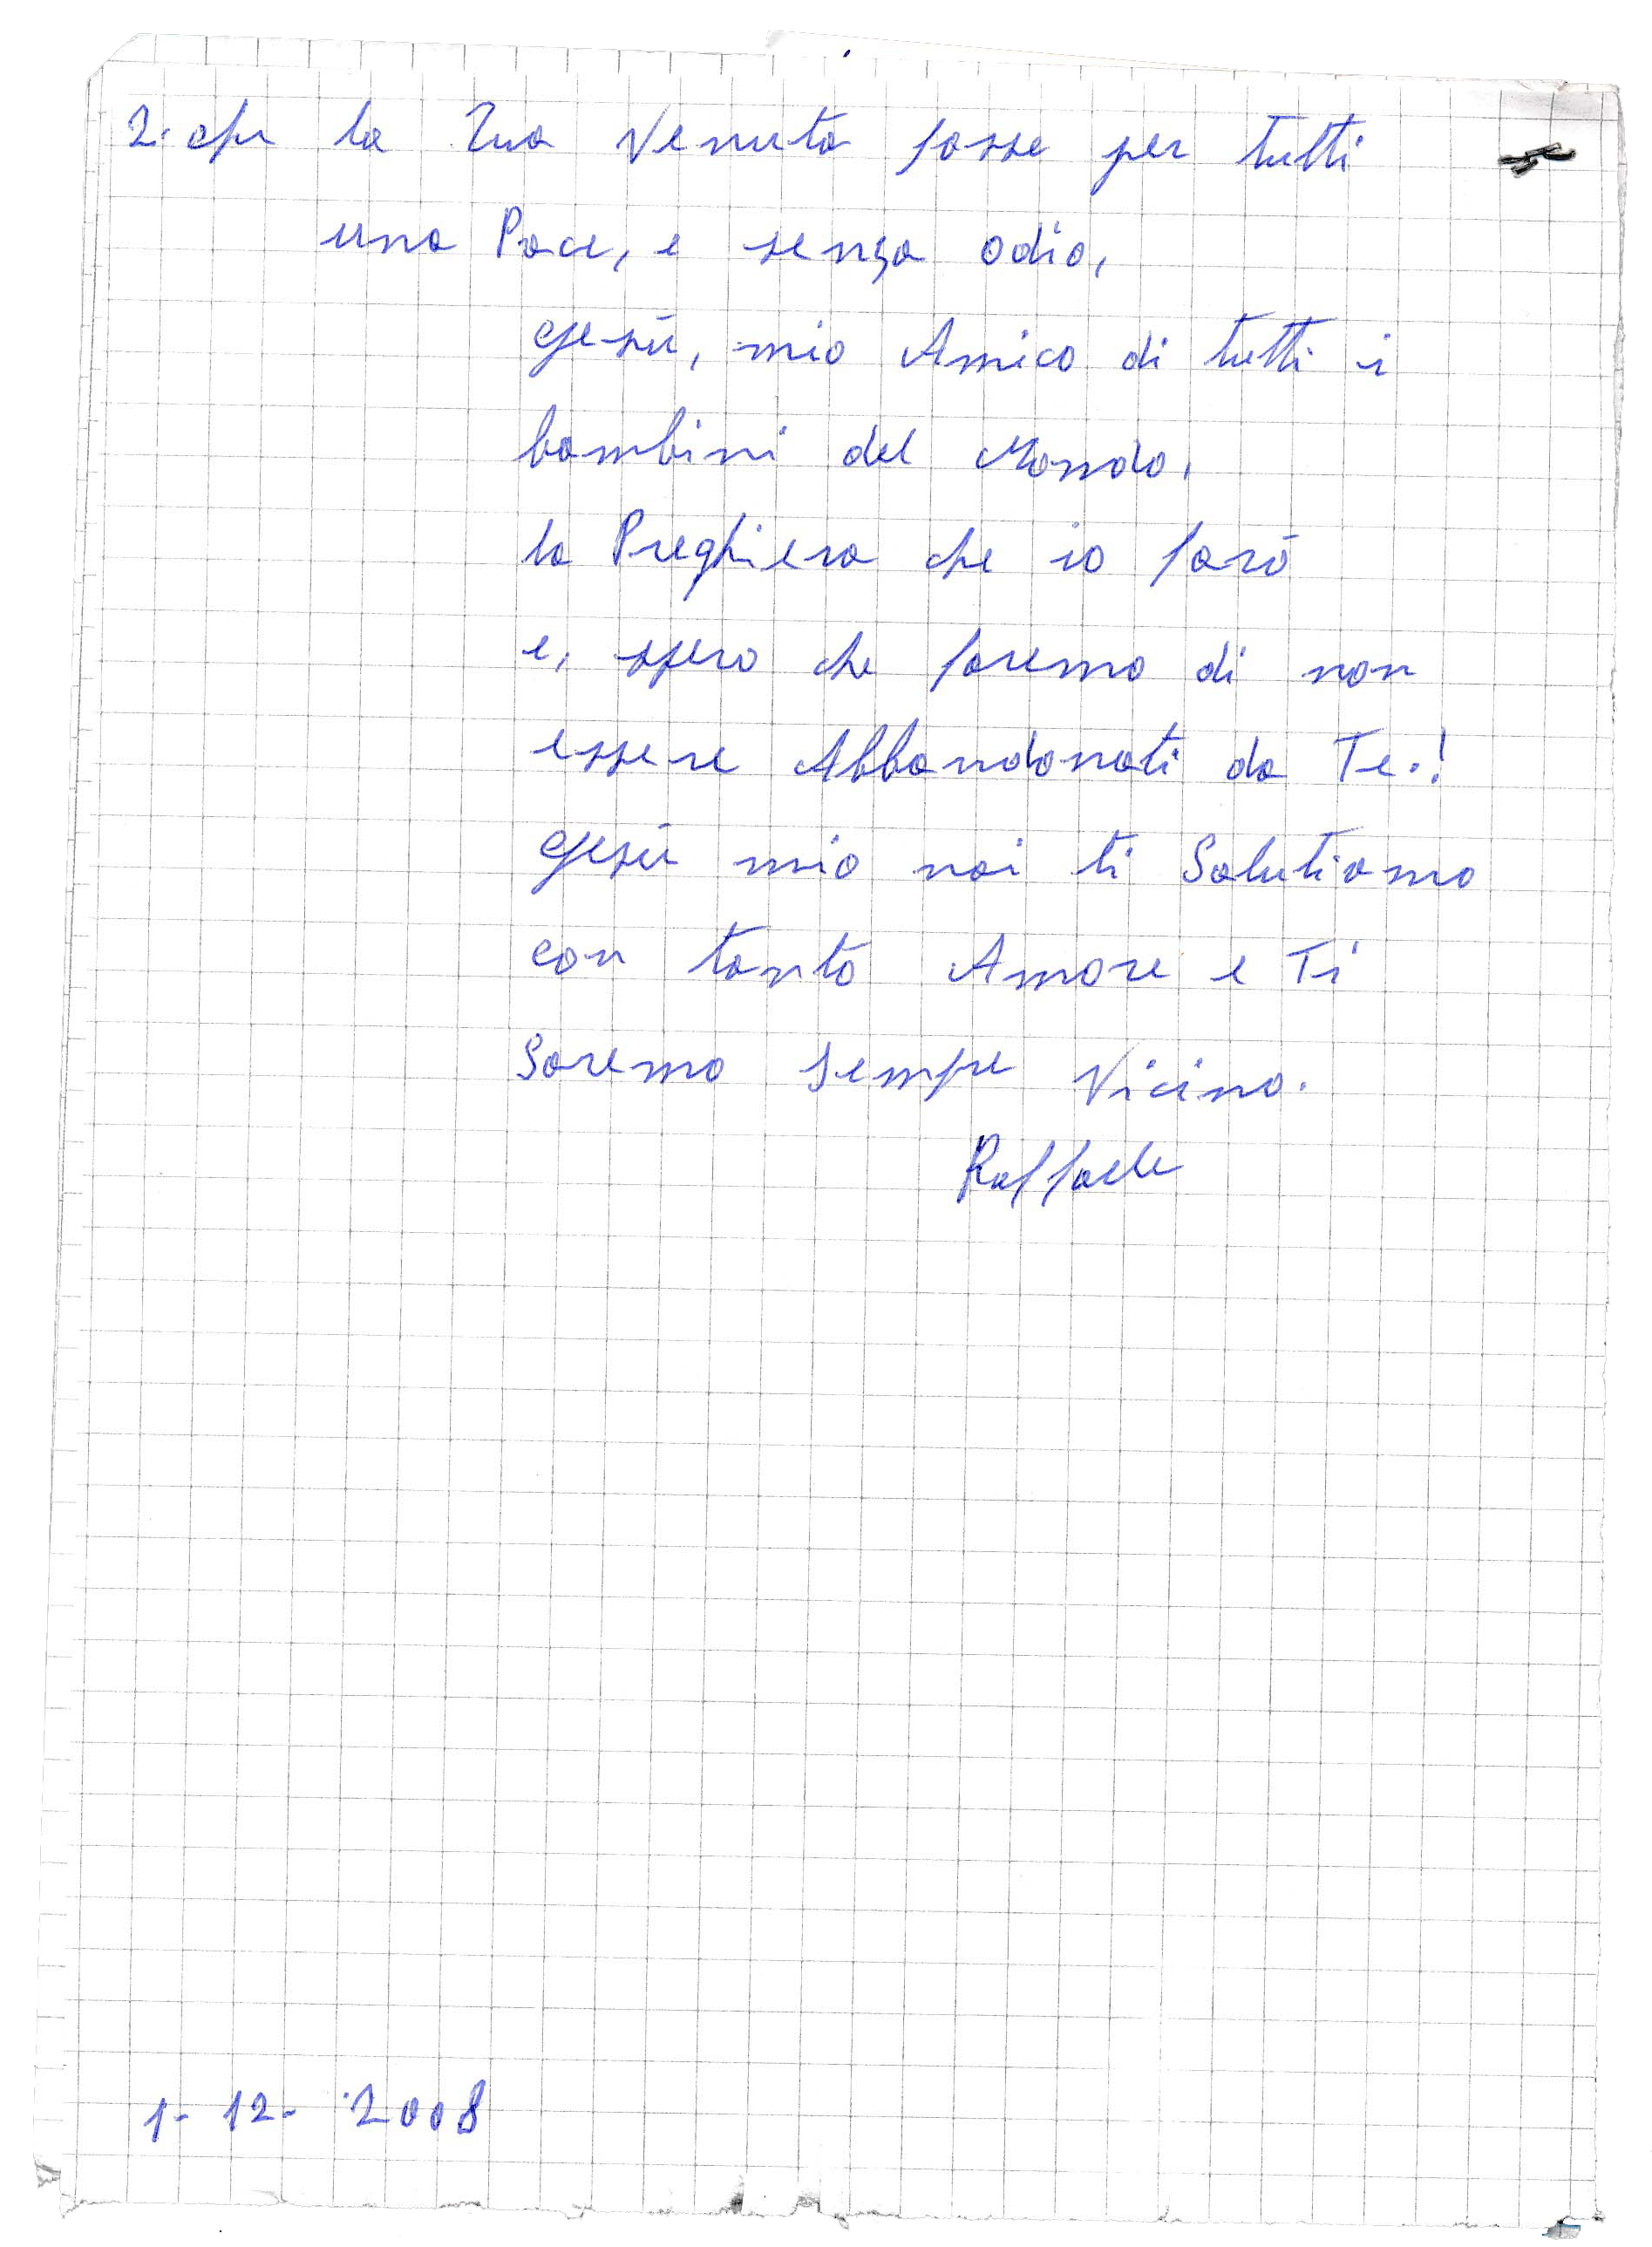 2. che la Tua Venuta fosse per tutti
una Pace, e senza odio,
Gesù, mio Amico di tutti i
bambini del Mondo,
la Preghiera che io farò
e, spero che faremo di non
essere Abbandonati da Te.!
Gesù mio noi ti Salutiamo
con tanto Amore e Ti
Saremo sempre Vicino.
Raffaele
1-12-2008